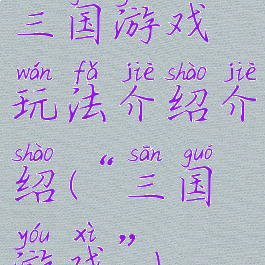 三国游戏
wán fǎ jiè shào jiè
玩法介绍介
shào “ sān guó
绍(“三国
yóu xì ”
游戏”)